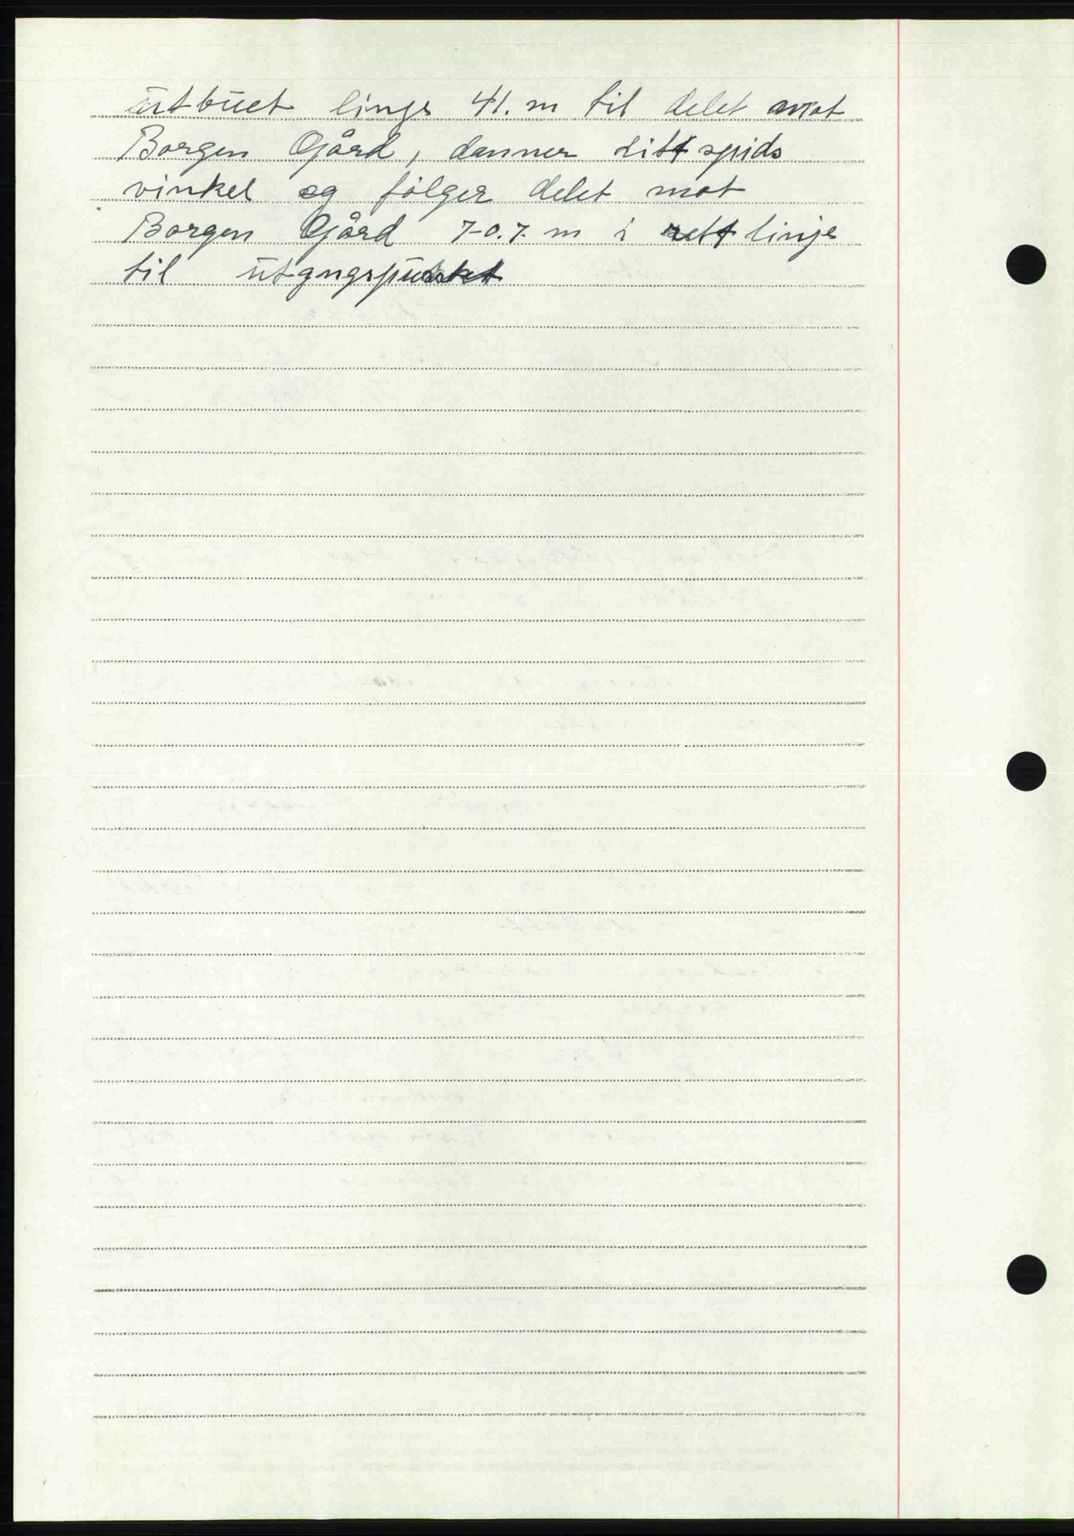 utbuet linje 41. m til delet mot
Borgen Gård, danner litt spids
vinkel og følger delet mot
Borgen Gård 70.7. m i rett linje
til utgngspunktet